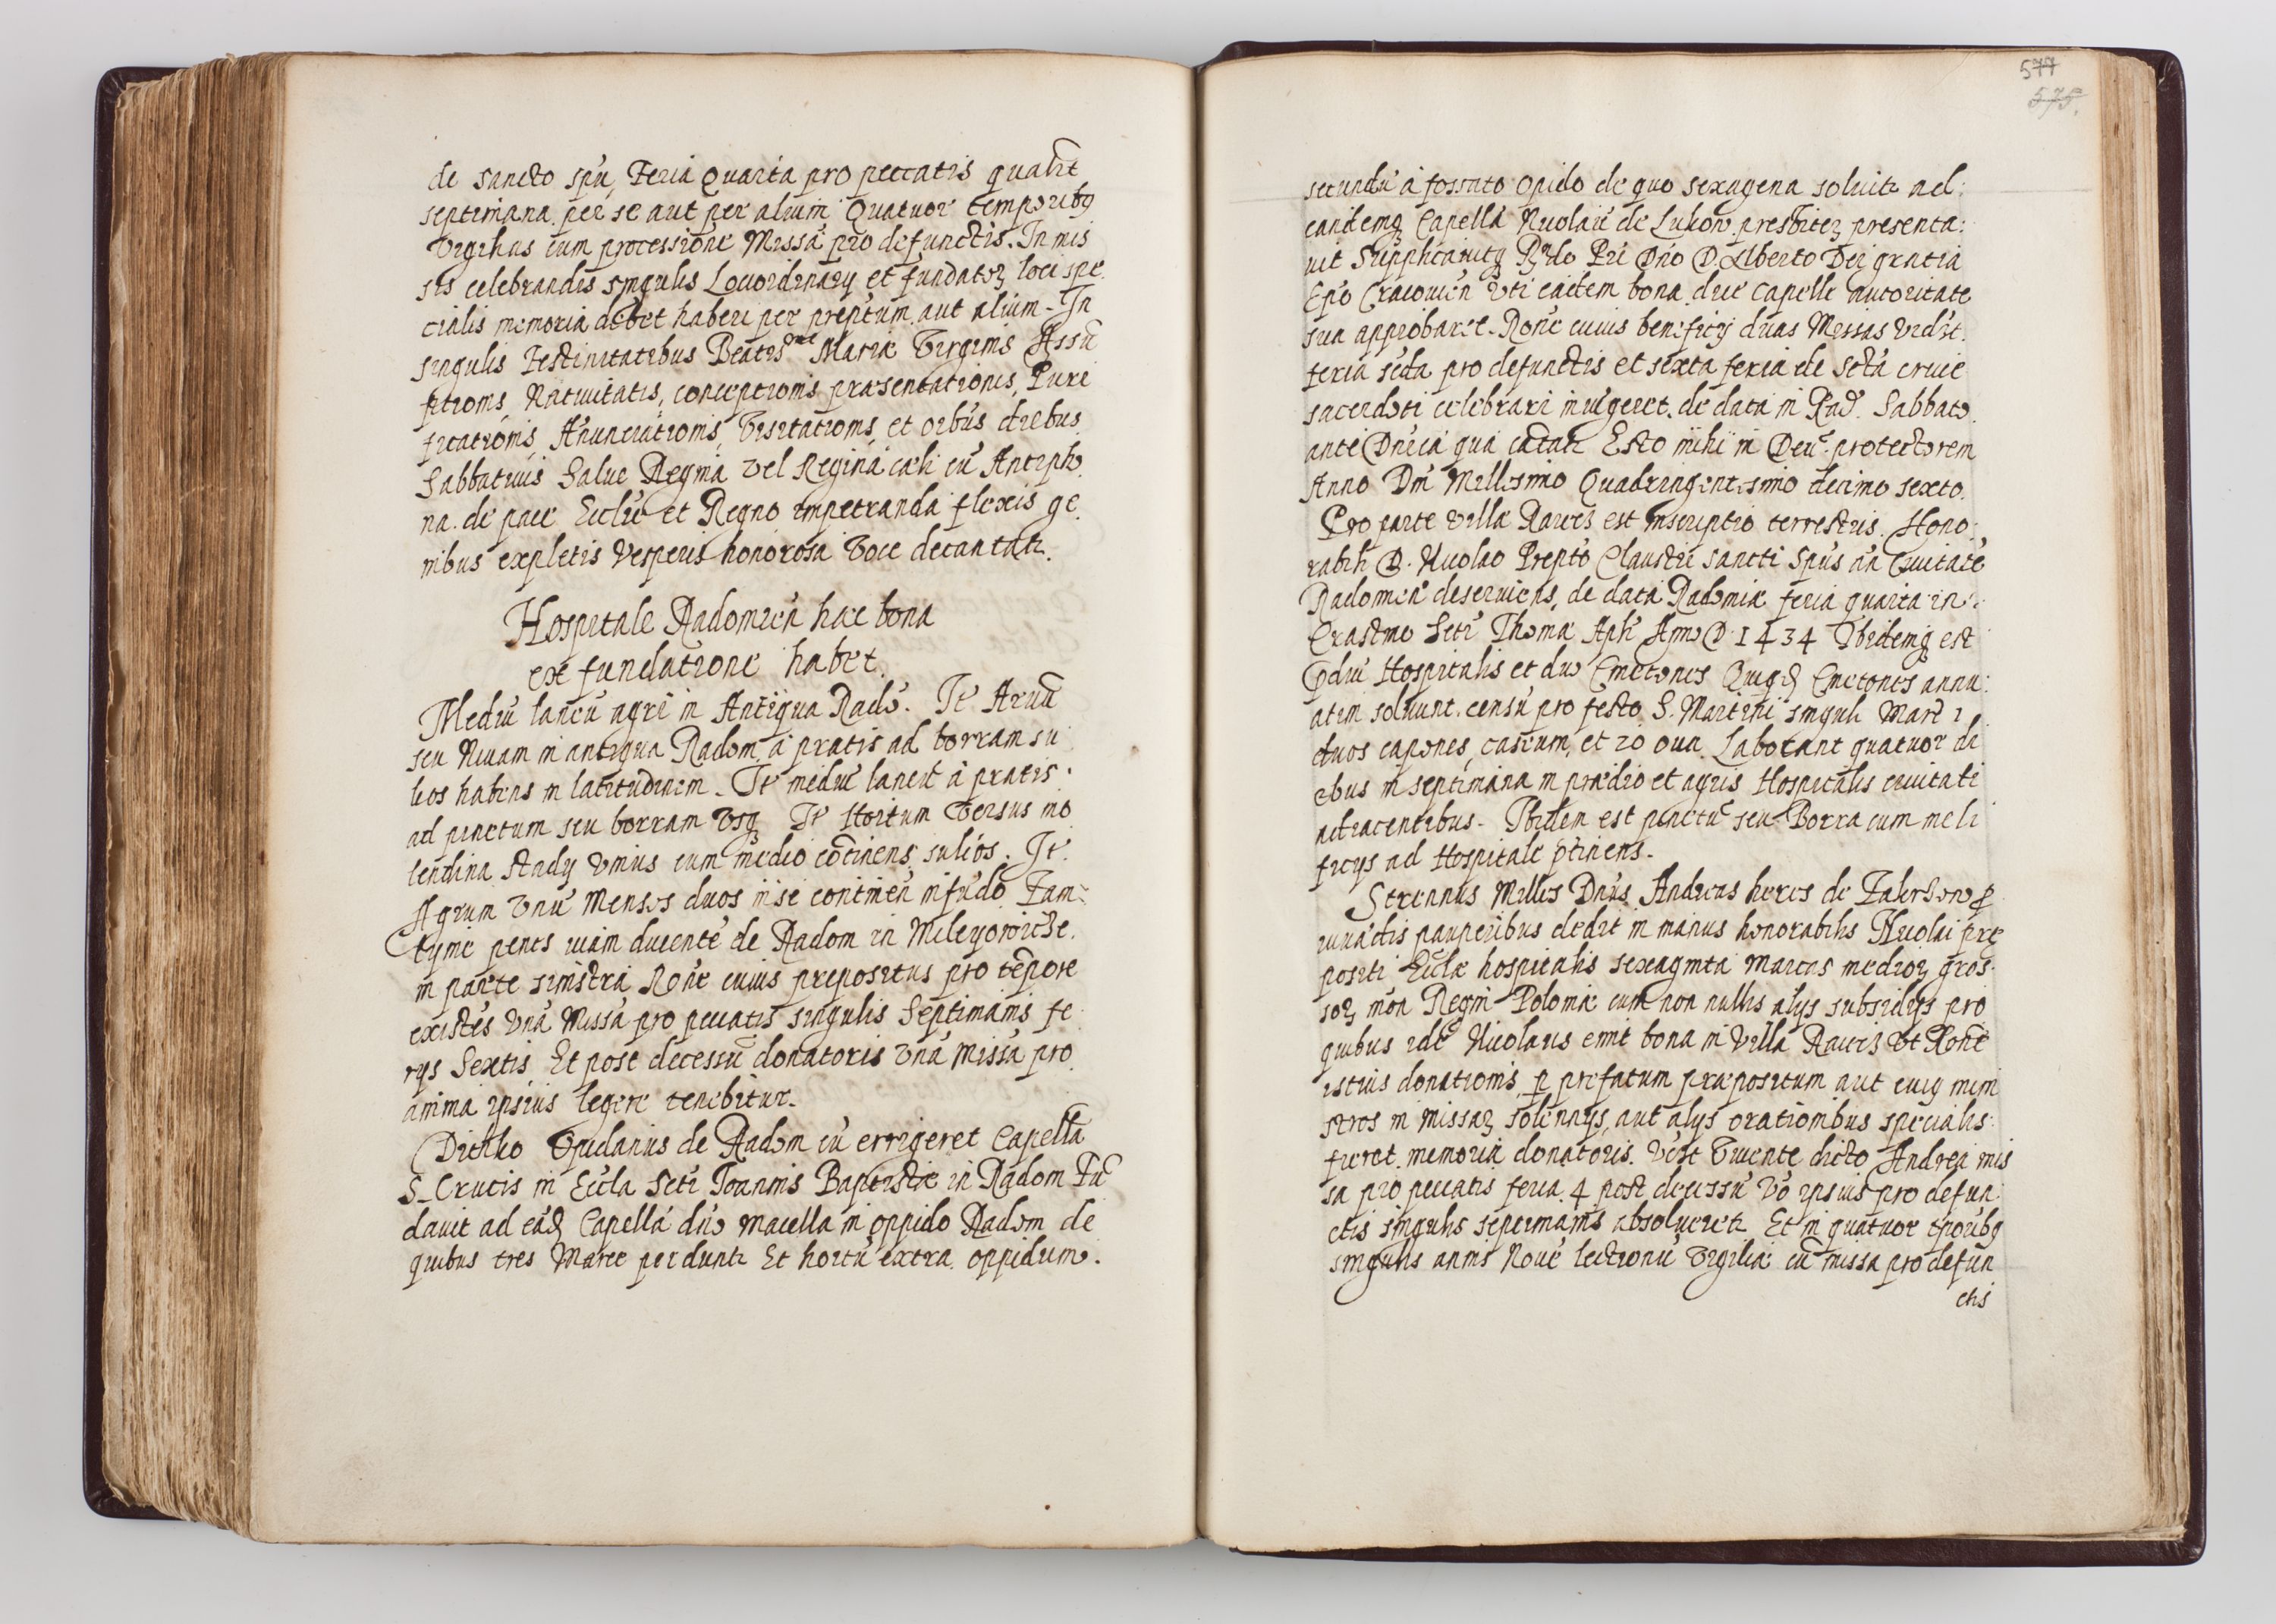 de sancto spũ, Feria Quarta pro peccatis qualit
septimana per se aut per alium Quatuor temporibꝫ
Vigilias cum processione Missã pro defunctis. In mis
sis celebrandis singulis Locordinarÿ et fundatoꝝ loci spe
cialis memoria debet haberi per prepitum aut alium. In
singulis Festiuitatibus Beatisme Mariæ Virginis Assũ
ptionis, Natiuitatis, conceptionis, præsentationis, Puri
ficationis, Anunciationis, Visitationis, et oĩbus diebus
Sabbatiuis Salue Regina vel Regina cæli cũ Antipho
na. de pace Eccliæ et Regno impetranda flexis ge
nibus expletis Vesperis honorosa Voce decantatr.
Hospitale Radomien hæc bona
ex fundatione habet.
Mediũ laneũ agri in Antiqua Radõ. It Aruũ
seu Niuam in antiqua Radom à pratis ad borram su
lios habens in latitudinem. It mediũ laneũ à pratis
ad pinetum seu borram Vsqꝫ It Hortum Versus mo
lendina Stadÿ Vnius cum medio cõtinens sulios. It.
Agrum Vnũ Mensos duos in se continen in fũdo Fam
tymie penes uiam ducentẽ de Radom in Mileyowicze.
in parte sinistra Rone cuius prepositus pro tẽpore
existẽs Vnã Missã pro peccatis singulis Septimanis fe
rÿs Sextis Et post decessũ donatoris Vnã Missã pro
anima ipsius legere tenebitur.
Dithko Opidanus de Radom cũ errigeret Capellã
S. Crucis in Eccla Scti Joannis Baptistæ in Radom Fũ
dauit ad eãd Capellã duo Macella in oppido Radom de
quibus tres Marce perduntr Et hortũ extra oppidum.
577
575.
secundũ à fossato opido de quo sexagena soluitr ad
eandemqꝫ Capellã Nicolaũ de Lukow presbiteꝝ presenta:
uit Supplicauitqꝫ Rndo Pri Dno D. Alberto Dei gratia
Epo Cracouien Vti eadem bona dicẽ capelle autoritate
sua approbaret. Rone cuius beneficÿ duas Missas Vidlt.
feria scda pro defunctis et sexta feria de Sctã cruce
sacerdoti celebrari iniũgeret. de data in Rad. Sabbato
ante Dnicã qua cãtatr Esto mihi in Deũ protectorem
Anno Dni Millesimo Quadringentesimo decimo sexto.
Pro parte villæ Rawes est inscriptio terrestris. Hono:
rabili D. Nicolao Prepto Claustri sancti Spũs añ Ciuitatẽ
Radomien deseruiens, de data Radomiæ feria quarta in
Crastino Scti Thomæ Apli Anno D. 1434 Ibidemqꝫ est
Pdiũ Hospitalis et duo Cmetones Quiqd Cmetones annu:
atim soluunt. censũ pro festo S. Martini singuli Marc 1
duos capones, caseum, et 20 oua. Laborant quatuor di
ebus in septimana in prædio et agris Hospitalis ciuitati
adiacentibus. Ibidem est pinetũ seu Borra cum meli
ficÿs ad Hospitale ptinens.
Strennus Milles Dnus Andreas heres de Zakrzow p
uuãctis pauperibus dedit in manus honorabilis Nicolai pre
positi Eccle hospitalis sexaginta Marcas medioꝝ gros
soꝝ mon Regni Poloniæ cum non nullis alÿs subsidÿs pro
quibus idẽ Nicolaus emit bona in Villa Rawes Vt Rone
istius donationis, p præfatum præpositum aut eiuꝫ mini
stros in Missaꝝ solennÿs, aut alÿs orationibus specialis
fieret memoria donatoris. Vt Viuente dicto Andrea mis
sa pro peccatis feria. 4 post decessũ Vo ipsius pro defun
ctis singulis sepetimanis absolueretr. Et in quatuor tporibꝫ
singulis annis Nouẽ lectionũ Vigiliæ cũ missa pro defun
ctis